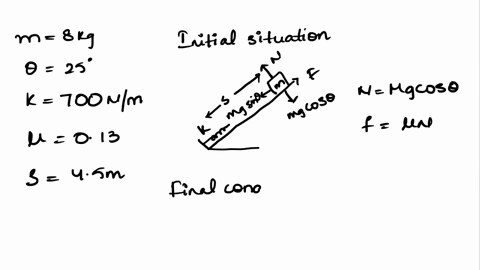 m = 8kg
θ = 25°
K = 700 N/m
μ = 0.13
S = 4.5m
Initial situation
N
F
m
S
mg sinθ
mg cosθ
K
N = Mg cosθ
f = μN
final cono